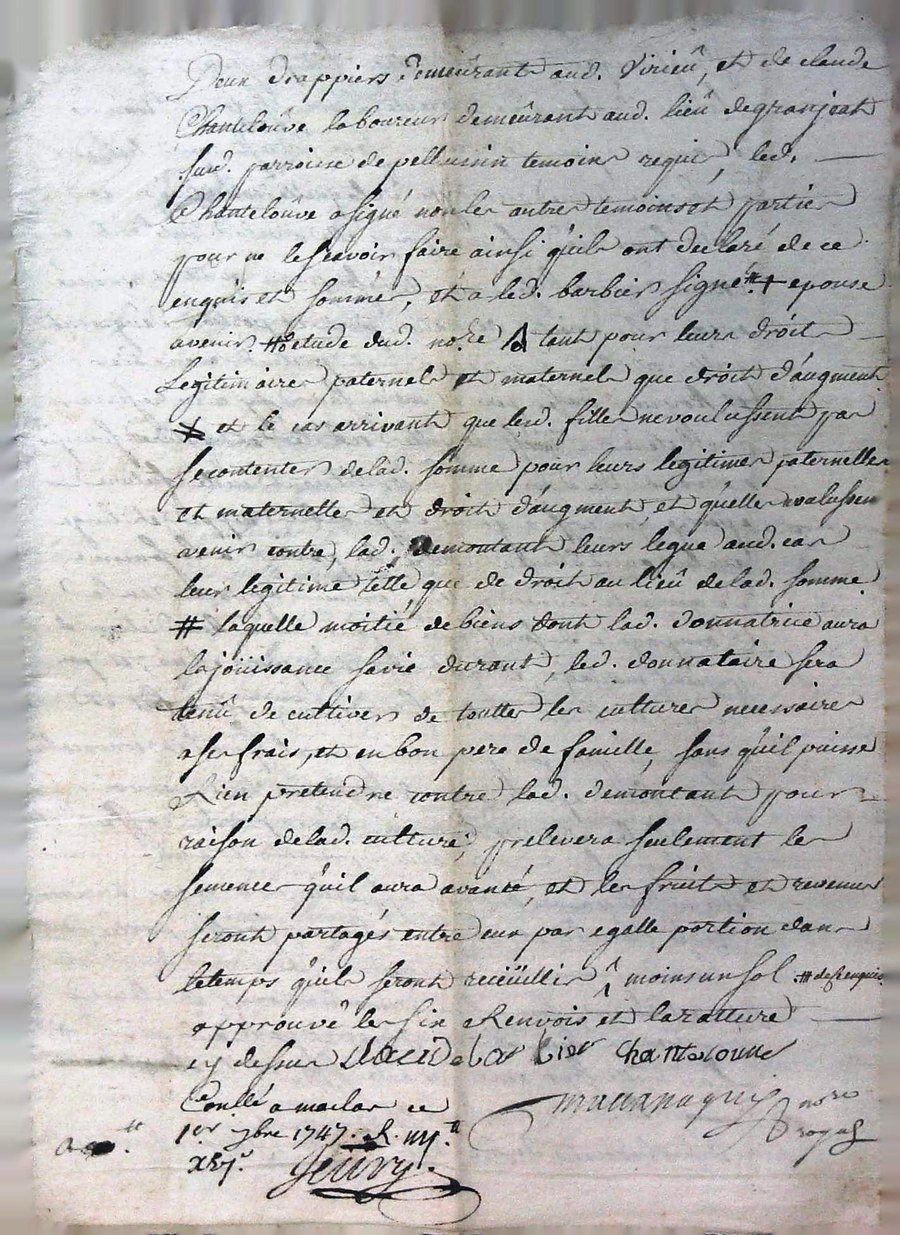 Deux drappiers demeurant aud. Virieû, et de claude
Chantelouve laboureur demeûrant aud. lieû de granjeat
sud. parroisse de pellussin temoins requis, led.
Chantelouve a signé non les autres temoins et parties
pour ne le sçavoir faire ainsi qu'ils ont declaré de ce
enquis et sommés, et a led. barbier signé. # + epouse
avenir. # etude dud. nore. tant pour leurs droits
Legitimaires paternels et maternels que droit d'augment
et le cas arrivant que lesd. filles ne voulussent pas
se contenter de lad. somme pour leurs legitimes paternelles
et maternelles et droit d'augment, et qu'elles voulussent
venir contre, lad. demontant leurs legue aud. cas
leur legitime telle que de droit au lieû de lad. somme
# laquelle moitié de biens dont lad. donnatrice aura
la joüissance sa vie durant, led. donnataire sera
tenû de cultiver de touttes les cultures necessaires
a ses frais, et en bon pere de famille, sans qu'il puisse
Rien pretendre contre lad. demontant pour
raison de lad. culture, prelevera seulement les
semences qu'il aura avancé, et les fruits et revenus
seront partagés entre eux par egalle portion dans
le temps qu'ils seront recüeillis moins un sol # de Requis
approuvé les six Renvois et la ratture
cy dessus barbier Chantelouve
Conllé a maclas ce
1er 7bre 1747. R.
nore
royal